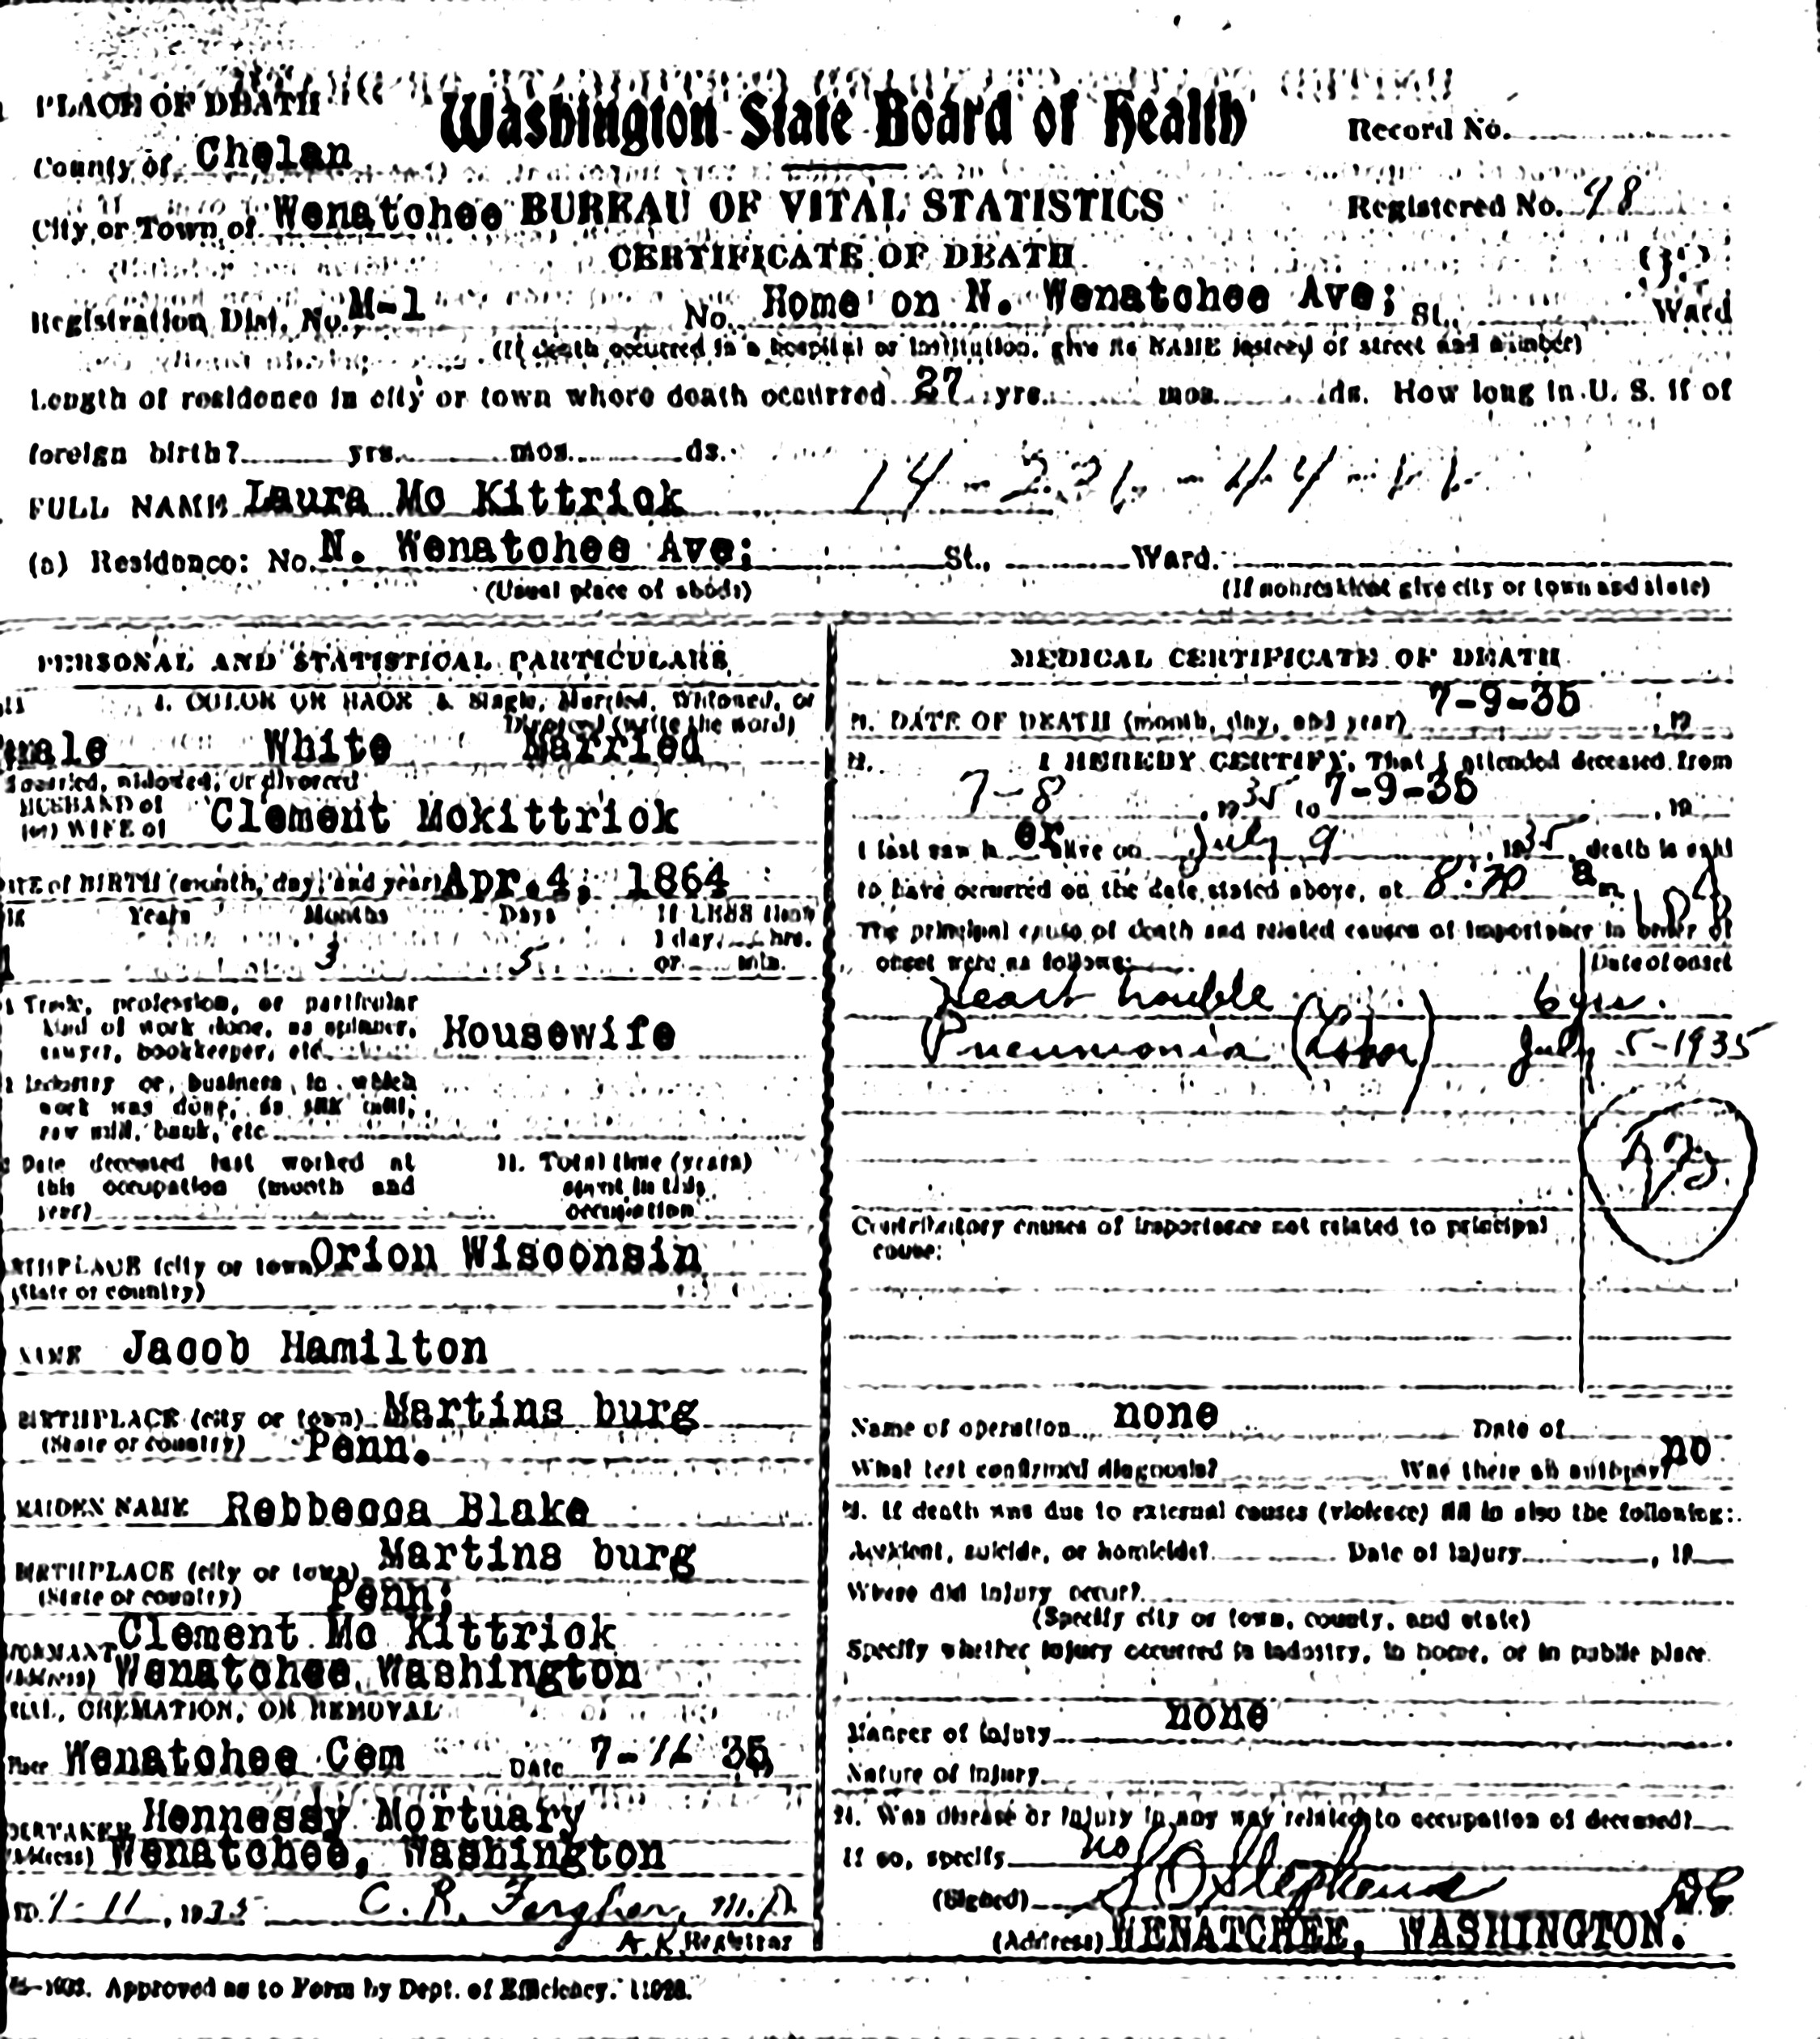 PLACE OF DEATH
Washington State Board of Health
Record No.
County of Chelan
City or Town of Wenatchee
BUREAU OF VITAL STATISTICS
Registered No. 98
CERTIFICATE OF DEATH
Registration Dist. No. M-1 No. Home on N. Wenatchee Ave; St., Ward
(If death occurred in a hospital or institution, give its NAME instead of street and number)
Length of residence in city or town where death occurred 27 yrs. mos. ds. How long in U. S. if of
foreign birth? yrs. mos. ds.
FULL NAME Laura Mc Kittrick
(a) Residence: No. N. Wenatchee Ave; St., Ward.
(Usual place of abode) (If nonresident give city or town and state)
PERSONAL AND STATISTICAL PARTICULARS
4. COLOR OR RACE 5. Single, Married, Widowed, or
Divorced (write the word)
male White Married
married, widowed, or divorced
HUSBAND of
(or) WIFE of Clement Mckittrick
DATE of BIRTH (month, day, and year) Apr. 4, 1864
Years Months Days If LESS than
1 day, hrs.
3 5 or min.
Trade, profession, or particular
kind of work done, as spinner,
sawyer, bookkeeper, etc. Housewife
Industry or business in which
work was done, as silk mill,
saw mill, bank, etc.
Date deceased last worked at
this occupation (month and
year)
11. Total time (years)
spent in this
occupation
BIRTHPLACE (city or town) Orion Wisconsin
(State or country)
NAME Jacob Hamilton
BIRTHPLACE (city or town) Martins burg
(State or country) Penn.
MAIDEN NAME Rebbecca Blake
BIRTHPLACE (city or town) Martins burg
(State or country) Penn;
INFORMANT Clement Mc Kittrick
(Address) Wenatchee, Washington
BURIAL, CREMATION, OR REMOVAL
Place Wenatchee Cem Date 7-11 35
UNDERTAKER Hennessy Mortuary
(Address) Wenatchee, Washington
7-11, 1935 C. R. M.D.
Registrar
MEDICAL CERTIFICATE OF DEATH
21. DATE OF DEATH (month, day, and year) 7-9-35, 19
22. I HEREBY CERTIFY, That I attended deceased from
7-8, 1935 to 7-9-35, 19
I last saw h er alive on July 9, 1935, death is said
to have occurred on the date stated above, at 8:20 a m.
The principal cause of death and related causes of importance in order of
onset were as follows: Date of onset
Heart trouble 6 yrs.
Pneumonia (Lobar) July 5-1935
Contributory causes of importance not related to principal
cause:
Name of operation none Date of
What test confirmed diagnosis? Was there an autopsy? no
23. If death was due to external causes (violence) fill in also the following:
Accident, suicide, or homicide? Date of injury, 19
Where did injury occur?
(Specify city or town, county, and state)
Specify whether injury occurred in industry, in home, or in public place.
none
Manner of injury
Nature of injury
24. Was disease or injury in any way related to occupation of deceased?
If so, specify no
(Signed)
(Address) WENATCHEE, WASHINGTON.
Approved as to Form by Dept. of Efficiency.